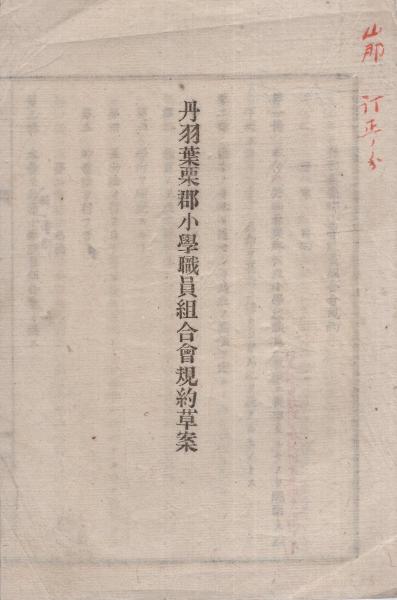 山那 訂正ノ分
丹羽葉栗郡小學職員組合會規約草案